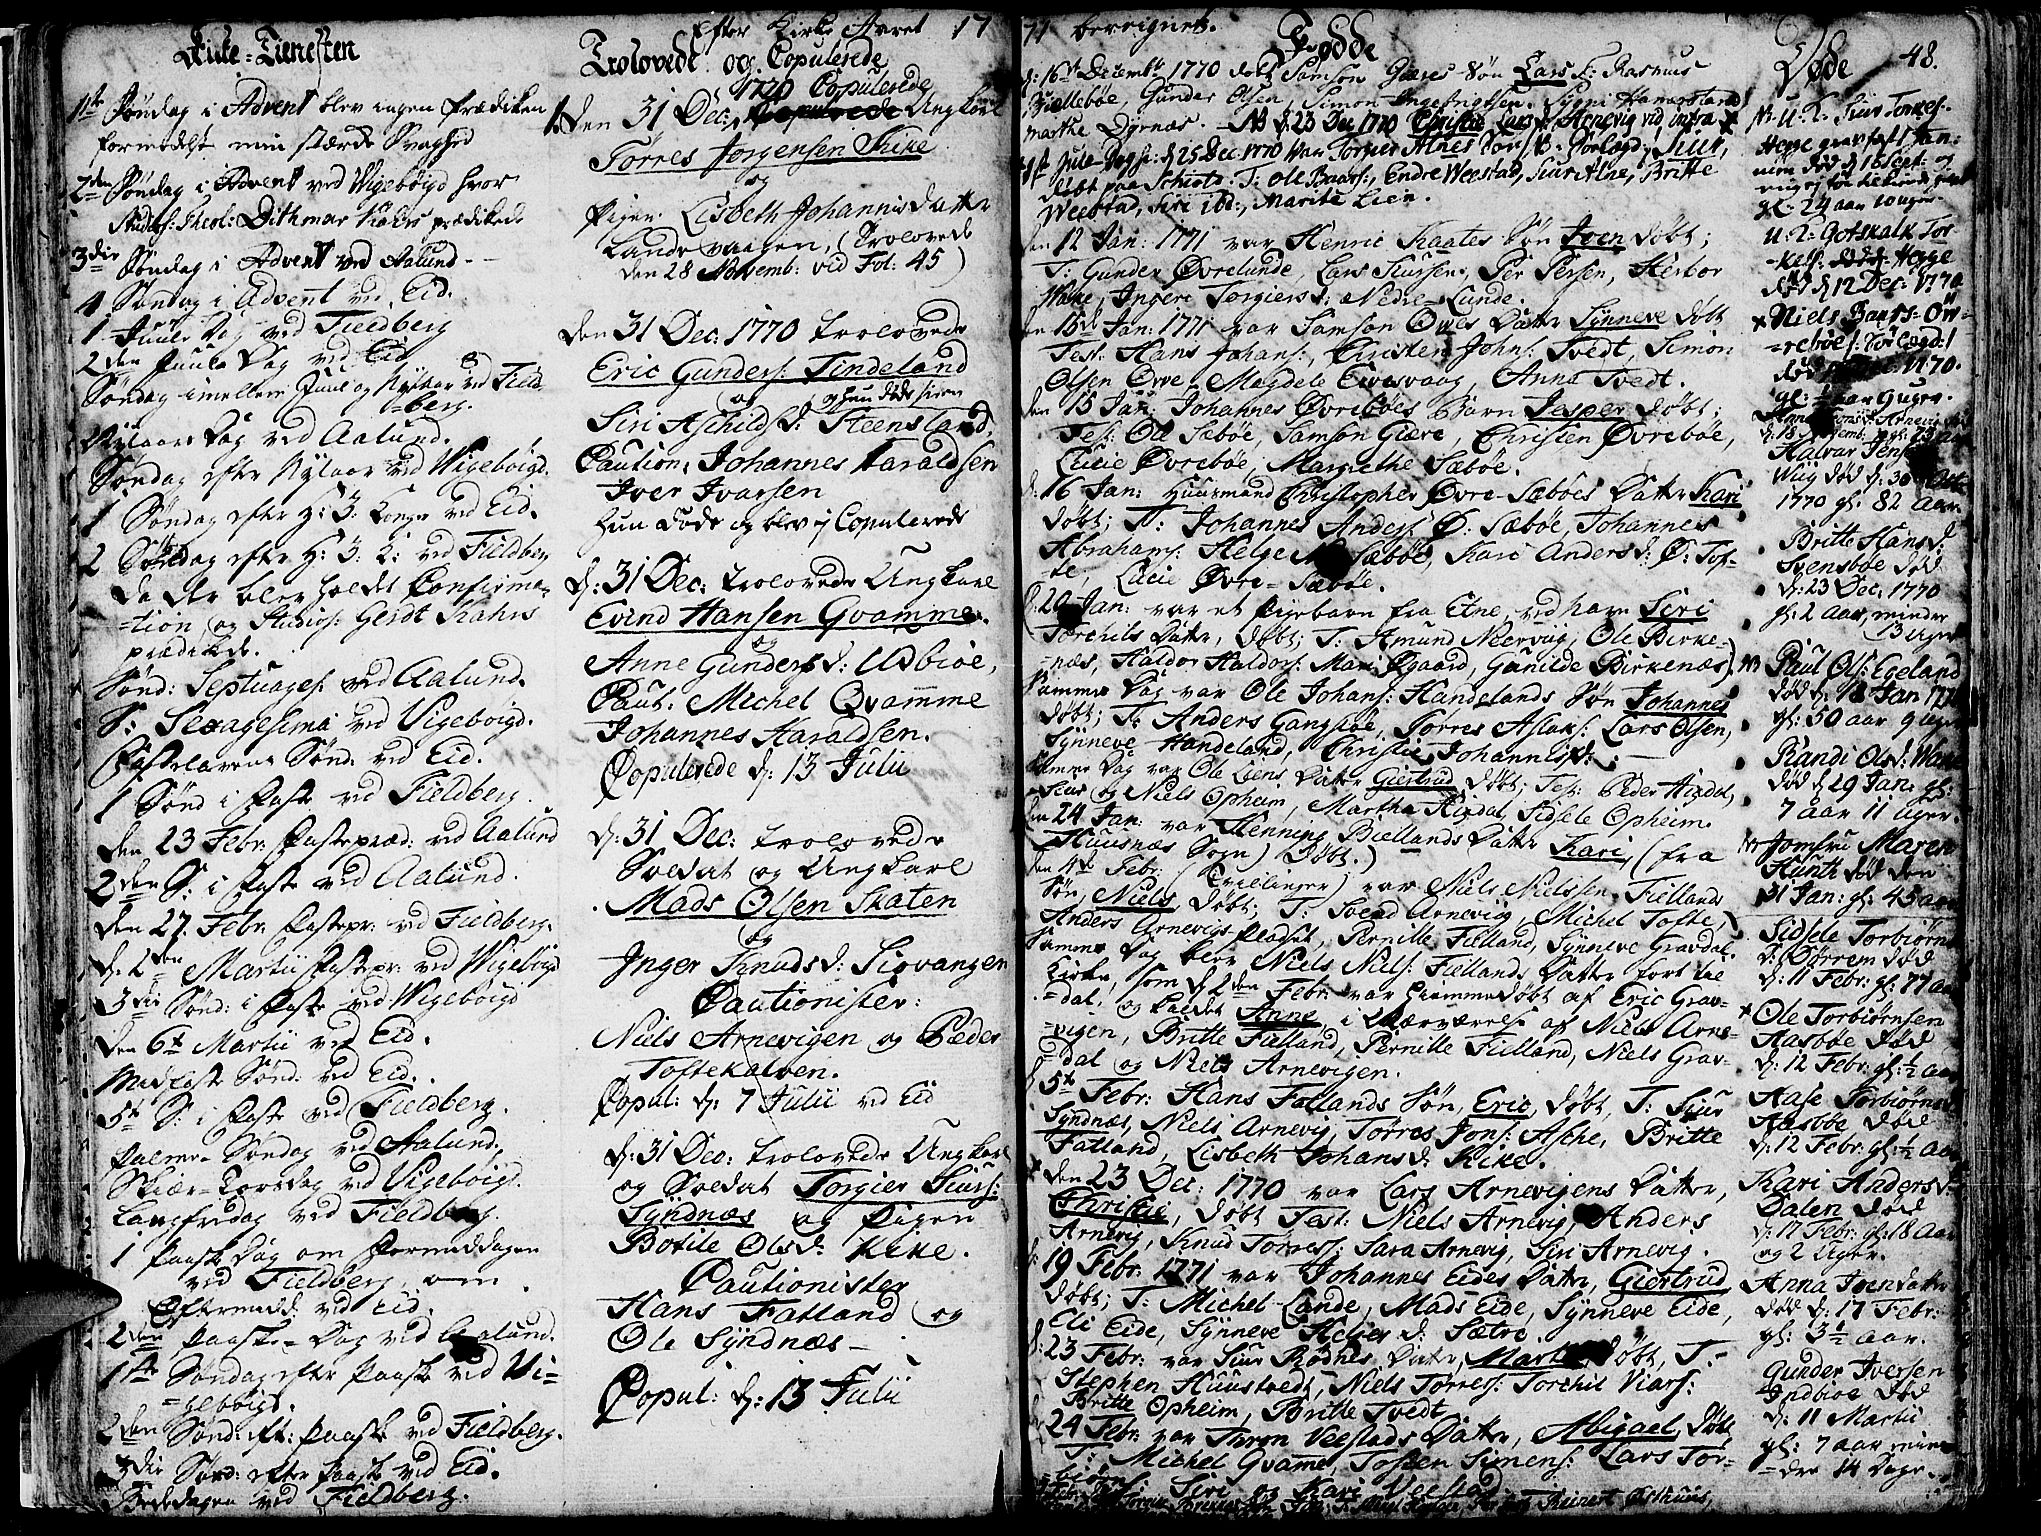 Efter Kirke Aaret 17
71 beregnet.
Kirke-Tienesten
1ste Søndag i Advent blev ingen Prædiken
formedelst min stærke Svaghed
2den Søndag i Advent ved Wigebøigd hvor
Studios: Theol: Dithmar Kahrs prædikede
3die Søndag i Advent ved Aalund
4 Søndag i Advent ved Eid.
1 Juule Dag ved Fieldberg
2den Juule Dag ved Eid
Søndag imellem Juul og Nytaar ved Field-
=berg.
Nytaars Dag ved Aalund.
Søndag efter Nytaar ved Wigebøigd.
1 Søndag efter H: 3: Konger ved Eid.
2 Søndag efter H: 3: K: ved Fieldberg
da der blev holdt Confirma-
=tion, og Studios: Gerdt Kahrs
prædikede.
Sønd: Septuages: ved Aalund.
S: Sexagesima ved Vigebøigd.
Fastelavens Sønd: ved Eid.
1 Sønd i Faste ved Fieldberg.
den 23 Febr: Fastepræd: ved Aalund
2den S: i Faste ved Aalund.
den 27. Febr: Fastepr: ved Fieldberg.
d: 2den Martii Fastepr: ved Wigebøigd
3die Sønd: i Faste ved Wigebøigd
den 6te Martii ved Eid.
Midfaste Sønd: ved Eid.
5te S: i Faste ved Fieldberg.
Palme Søndag ved Aalund.
Skiær-Torsdag ved Vigebøigd.
Langfredag ved Fieldberg.
1 Paaske Dag om Formiddagen
ved Fieldberg, om
Eftermidd: ved Eid.
2den Paaske-Dag ved Aalund.
1ste Søndag efter Paaske ved Vi-
=gebøigd.
2den Sønd: eft: Paaske ved Fieldberg.
3die Sønd: efter Paaske ved Eid.
Bededagen ved Fieldberg.
Trolovede og Copulerede
den 31 Dec: 1770 Copulerede Ungkarl
Torres Jorgensen Kike
og
Pigen Lisbeth Johannisdatter
Landevaagen, (Trolovede
den 28 Novemb: vid Fol: 45)
den 31 Dec: 1770 trolovede
Eric Gunders: Tindeland
og
Siri Aschilds D: Steensland
Caution: Johannes Haraldsen
Iver Ivarsen
hun døde og blev ej Copulerede
d: 31 Dec: trolovede Ungkarl
Evind Hansen Qvamme
og
Anne Gunders d: Udbioe,
Caut. Michel Qvamme
Johannes Haraldsen.
Copulerede d: 13 Julii
d: 31 Dec: trolovede
Soldat og Ungkarl
Mads Olsen Skaten
og
Inger Knuds d: Siovangen
Cautionister:
Niels Arnevigen og Peder
Toftekalven.
Copul: d: 7 Julii ved Eid
d: 31 Dec: trolovede Ungkarl
og Soldat Torgier Siurs:
Syndnæs og Pigen
Botile Ols d: Kike.
Cautionister
Hans Fatland og
Ole Syndnæs
Copul: d: 13 Julii
Fødde
d: 16de Decembr 1770 døbt Samson Giæres Søn Lars F: Rasmus
Biellebøe, Gunder Olsen, Simon Ingebrigtsen,
Marthe Dyrnæs. NB d: 23 Dec 1770 Christie Lars d: Arnevig vid infra
1st Jule Dag d: 25 Dec 1770 var Torgier Alnes Søn Siur,
døbt T: Ole Baars:, Endre Weestad, Siur Alne, Britte
Weestad, Siri ibd:, Marite Lien.
den 12 Jan: 1771 var Henric Skaates Søn Iven døbt;
T: Gunder Øvrelunde, Lars Siursen, Per Persen, Herbor
Wake, Ingeri Torgiers d: Nedre-Lunde.
den 15de Jan: 1771 var Samson Owes Datter Synneve døbt
Tes: Hans Johans:, Christen Johns: Tvedt, Simon
Olsen Øvre, Magdele Eivesvaag, Anna Tvedt.
den 15 Jan: Johannes Øvrebøes Barn Jesper døbt;
Tes: Ole Sæbøe, Samson Giære, Christen Øvrebøe,
Lucie Øvrebøe, Margrethe Sæbøe.
d: 16 Jan: Huusmand Christopher Øvre-Sæbøes Datter Kari
døbt; T: Johannes Anders: Ø: Sæbøe, Johannes
Abrahams: Helge Sæbøe, Kari Anders d: Ø: Tof-
=te, Lucie Øvre-Sæbøe.
d: 20 Jan: var et Pigebarn fra Etne, ved navn Siri
Torchils Datter, døbt; T: Amund Nøervig, Ole Birke-
=næs, Haldor Haldors: Mari Øgaard, Gunilde Birkenæs.
Samme Dag var Ole Johans: Handelands Søn Johannes
døbt; T: Anders Gangstøe, Torres Aslaks: Lars Olsen,
Synneve Handeland, Christie Johannis d:
Samme Dag var Ole Liens Datter Giertrud døbt; Tes: Peder Hixdal,
Siur og Niels Opheim, Martha Hixdal, Sidsele Opheim.
den 24 Jan: var Henning Biellands Datter Kari, (fra
Huusnæs Sogn) døbt.)
den 4de Febr: (Tvillinger) var Niels Nielssen Fiellands
Søn, Niels, døbt; T: Svend Arnevig, Michel Tofte,
Anders Arnevigs Pladset, Pernille Fielland, Synneve Gravdal.
Samme Dag blev Niels Niels: Fiellands Datter fort til
Kirke, som d: 2den Febr: var hiemmedøbt af Eric Grav-
=dal, og kaldet Anne, i Overværelse af Niels Arne-
=vigen, Britte Fielland, Pernille Fielland, Niels Grav-
=dal og Niels Arnevigen.
5te Febr: Hans Fatlands Søn, Eric, døbt, T: Siur
Syndnæs, Niels Arnevig, Torres Jons: Asche, Britte
Fatland, Lisbeth Johans d: Kike.
den 23 Dec: 1770 var Lars Arnevigens Datter,
Christie, døbt Test: Niels Arnevig, Anders
Arnevig, Knud Torress: Sara Arnevig, Siri Arnevig.
19 Febr: 1771 var Johannes Eides Datter, Giertrud
døbt; T: Michel Lande, Mads Eide, Synneve Eide,
Eli Eide, Synneve Helges d: Sætre.
d: 23 Febr: var Siur Rødnes Datter, Marta, døbt, T:
Stephen Huustvedt, Niels Torres: Torchil Viars:
Britte Opheim, Britte Tvedt.
24 Febr: var Theron Veestads Datter, Abigael, døbt
T: Michel Qvame, Tosten Simens: Lars Tor-
=biørns: Siri og Kari Veestad
Døde 48.
Hegge
nem død d: 16 Sept: og
gl: 24 aar
U. Z. Gotskalk Tor-
=kels: Hegge
død d: 12 Dec: 1770
Niels Baars: Øv-
=rebøes:
død Dec: 1770.
gl: ½ aar 6 uger.
Halvar Jens:
Wiig død d: 30 Oct:
1770 gl: 82 aar.
Britte Hans d:
Svensbøe død
d: 23 Dec: 1770
gl: 2 aar, minder
3 uger
Paul Ols: Egeland
død d: 18 Jan 1771
gl: 50 aar 9 uger
Randi Ols d: Wake
død d: 29 Jan: gl:
7 aar 11 uger.
Jomfru Maren
Hunth død den
31 Jan: gl: 45 aar
Sidsele Torbiørns
d: Børrem død
d: 11 Febr: gl: 77 aar
Ole Torbiørnsen
Aasbøe død
d: 12 Febr: gl: ½ aar
Aase Torbiørns
Aasbøe død
d: 12 Febr: gl: ½ aar
Kari Anders d:
Dalen død
d: 17 Febr: gl: 18 Aar
og 2 Uger.
Anna Iven datter
død d: 17 Febr:
gl: 3½ aar.
Gunder Iversen
Indbioe død
d: 11 Martii
gl: 7 aar min-
=dre 14 Dage.